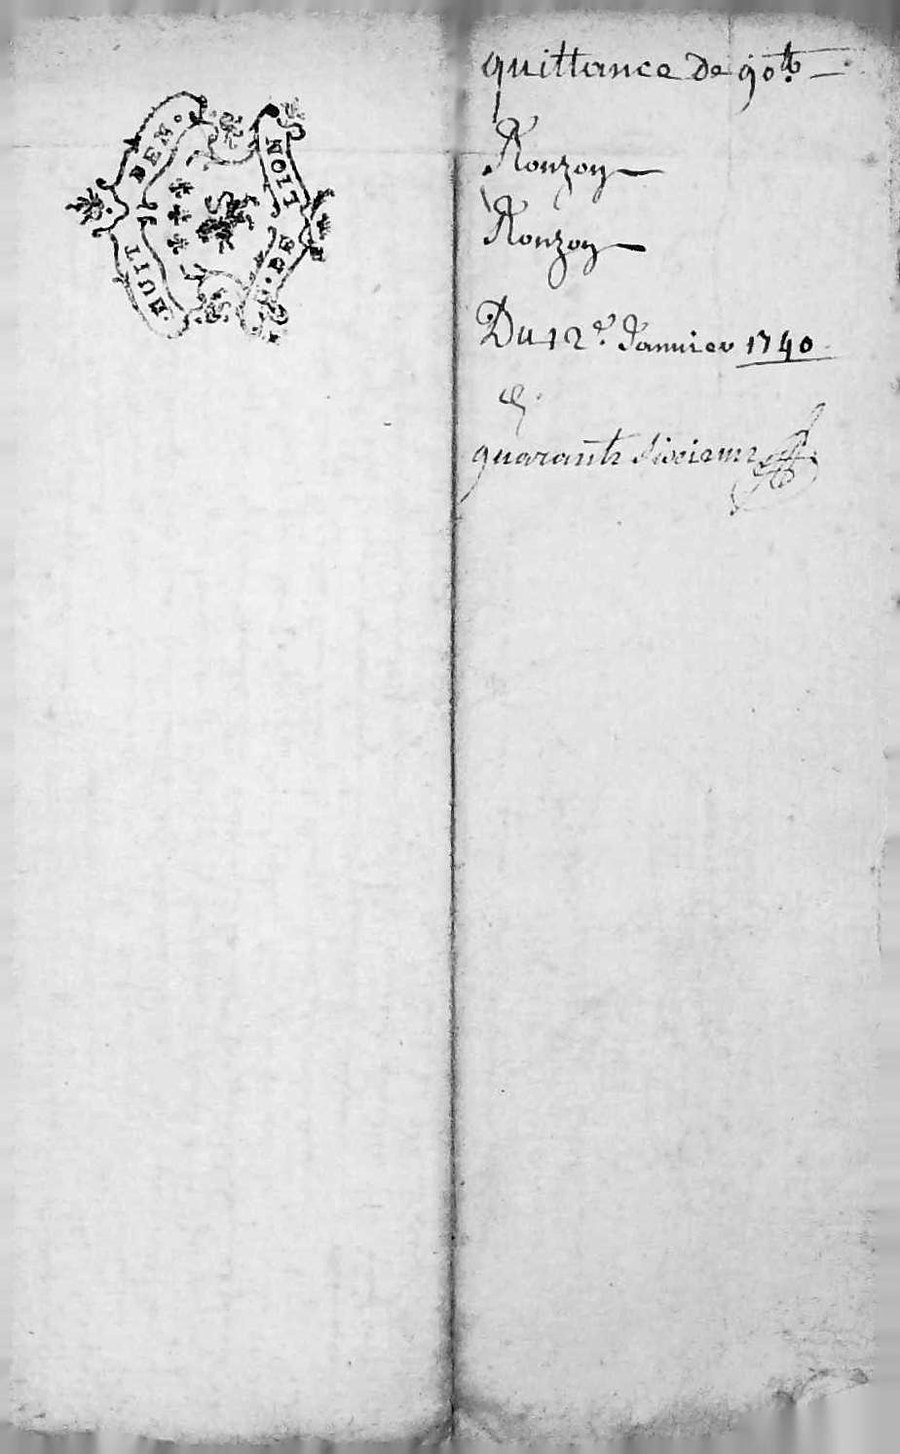 HUIT DEN.
LION
quittance de 90 ℔
Ronzon
Ronzon
Du 12e Janvier 1740
quarante sixieme